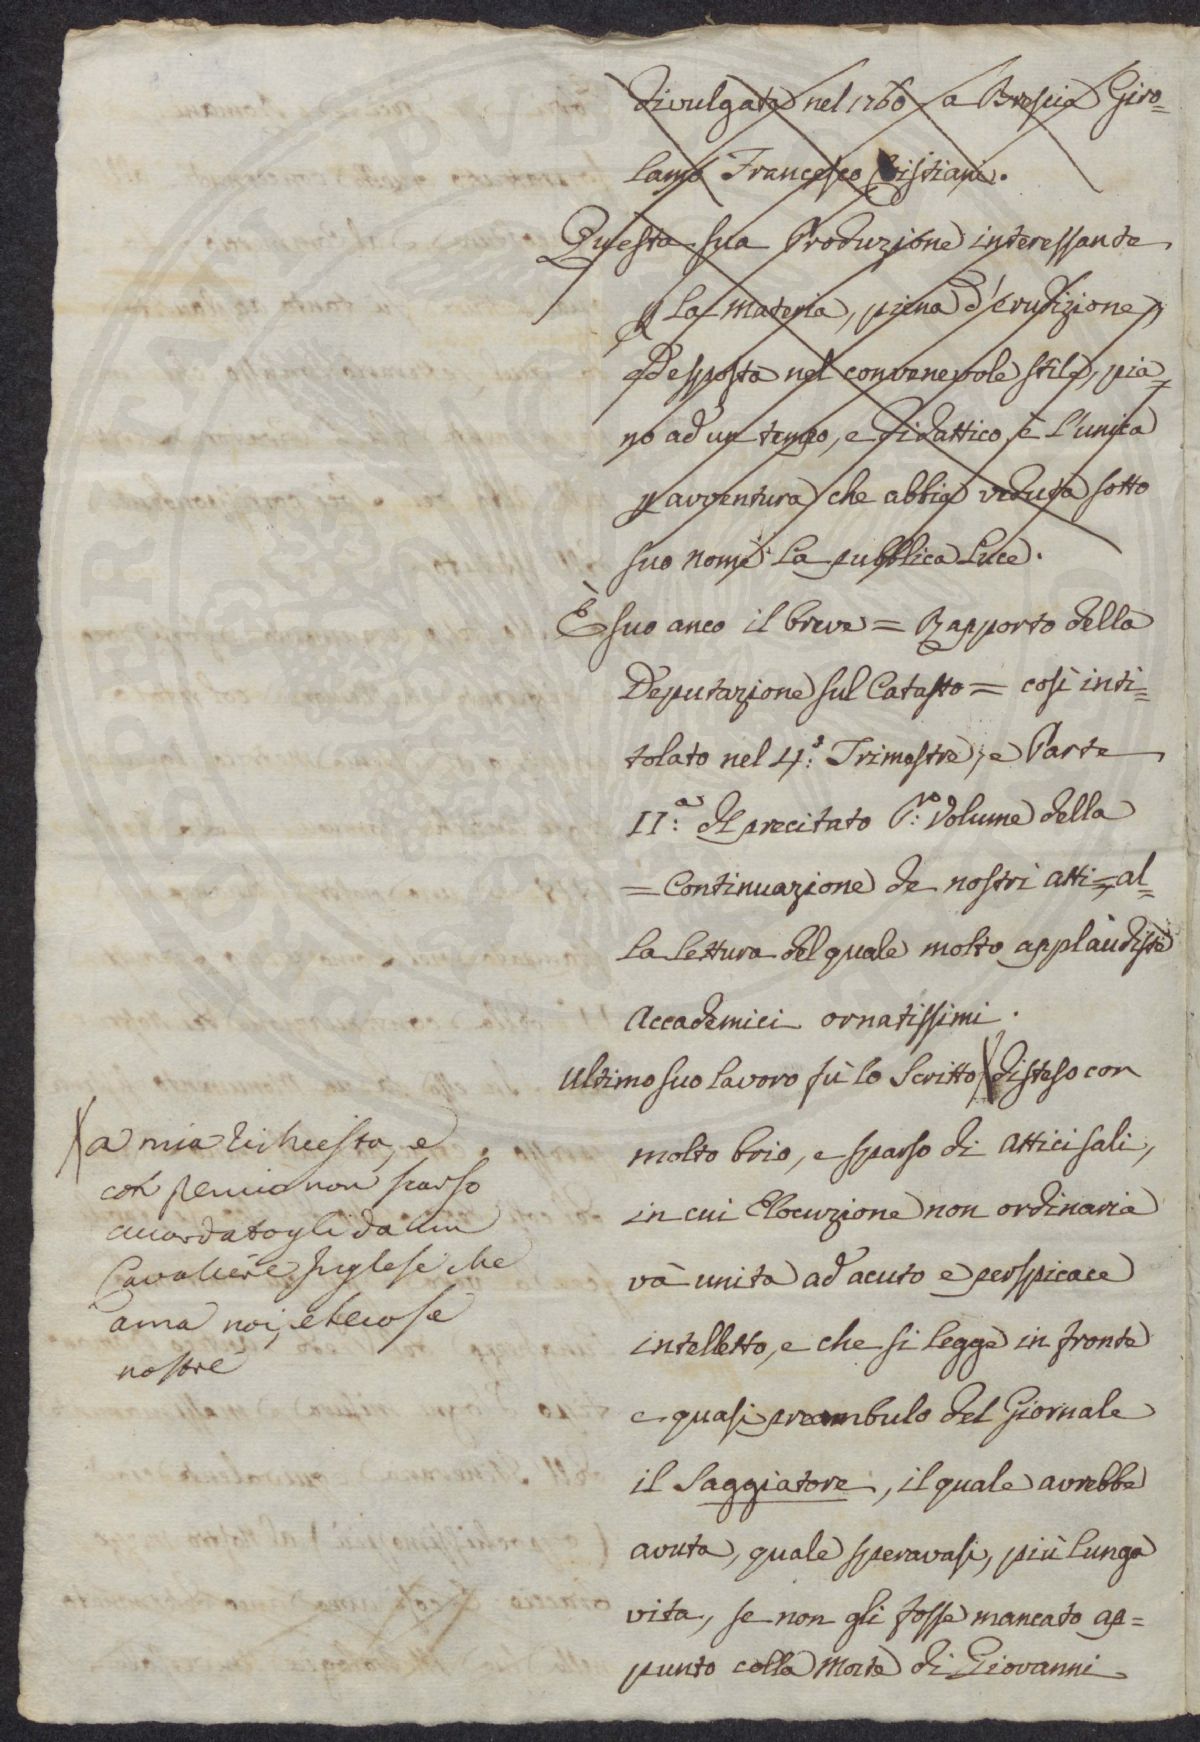 divulgata nel 1760 a Brescia Giro=
lamo Francesco Cristiani.
Questa sua Produzione interessante
p la materia, piena d'erudizione,
ed esposta nel convenevole stile, pia=
no ad un tempo, e didattico, è l'unica
p avventura che abbia veduta sotto
suo nome la pubblica Luce.
È suo anco il breve = Rapporto della
Deputazione sul Catasto = così inti=
tolato nel 4.º Trimestre, e Parte
II:ª del precitato P:mo Volume della
= Continuazione de nostri atti =, al=
la lettura del quale molto applaudiste
Accademici ornatissimi.
Ultimo suo lavoro fù lo Scritto X disteso con
molto brio, e sparso di attici sali,
in cui Elocuzione non ordinaria
và unita ad acuto e perspicace
intelletto, e che si legge in fronte
e quasi preambulo del Giornale
il Saggiatore, il quale avrebbe
avuta, quale speravasi, più lunga
vita, se non gli fosse mancato ap=
punto colla Morte di Giovanni
X a mia richiesta, e
con premio non scarso
accordatogli da un
Cavaliere Inglese che
ama noi, e le cose
nostre